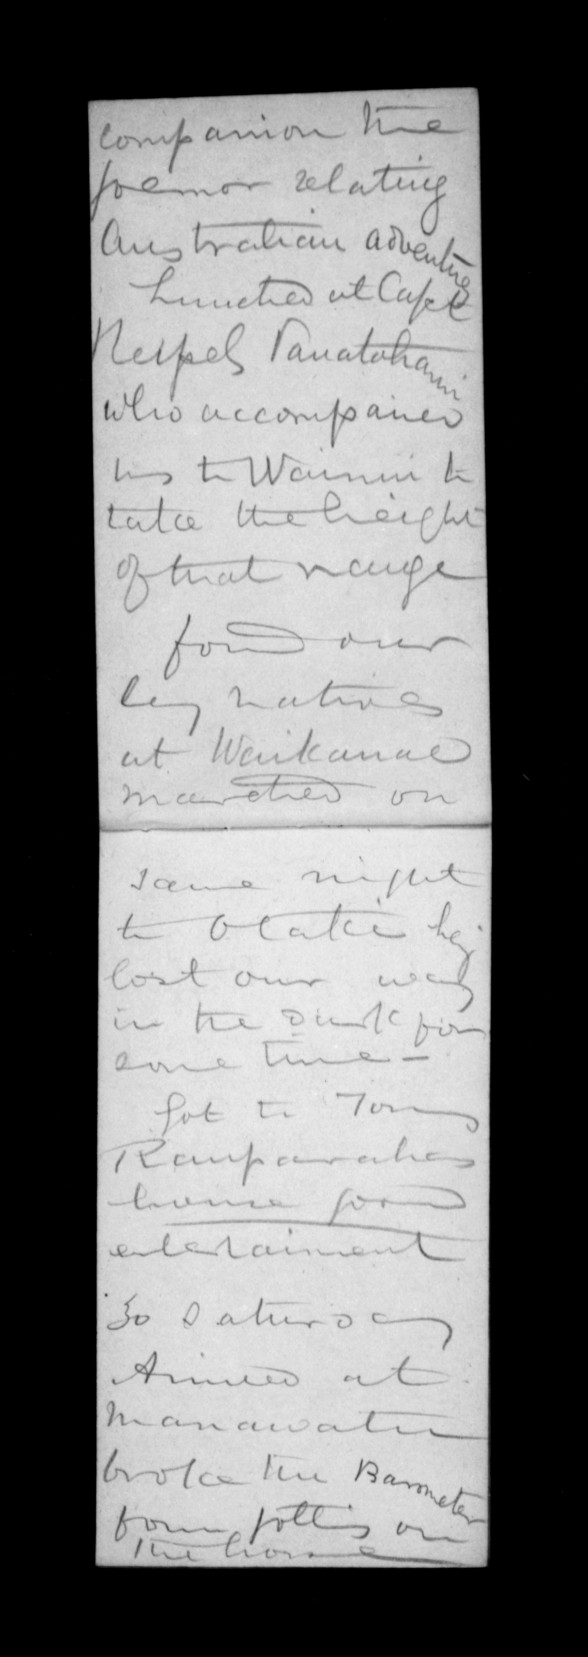 companion the
former relating
Australian adventures
Lunched at Cap
who accompanied
us to Wainui to
take the height
of that range
found our
lazy natives
at Waikanae
marched on
same night
to Otaki hvg
lost our way
in the dusk for
some time -
Got to Tomy
Rauparahas
house good
entertainment
30 Saturday
Arrived at
Manawatu
broke the Barometer
from jolting on
the horse